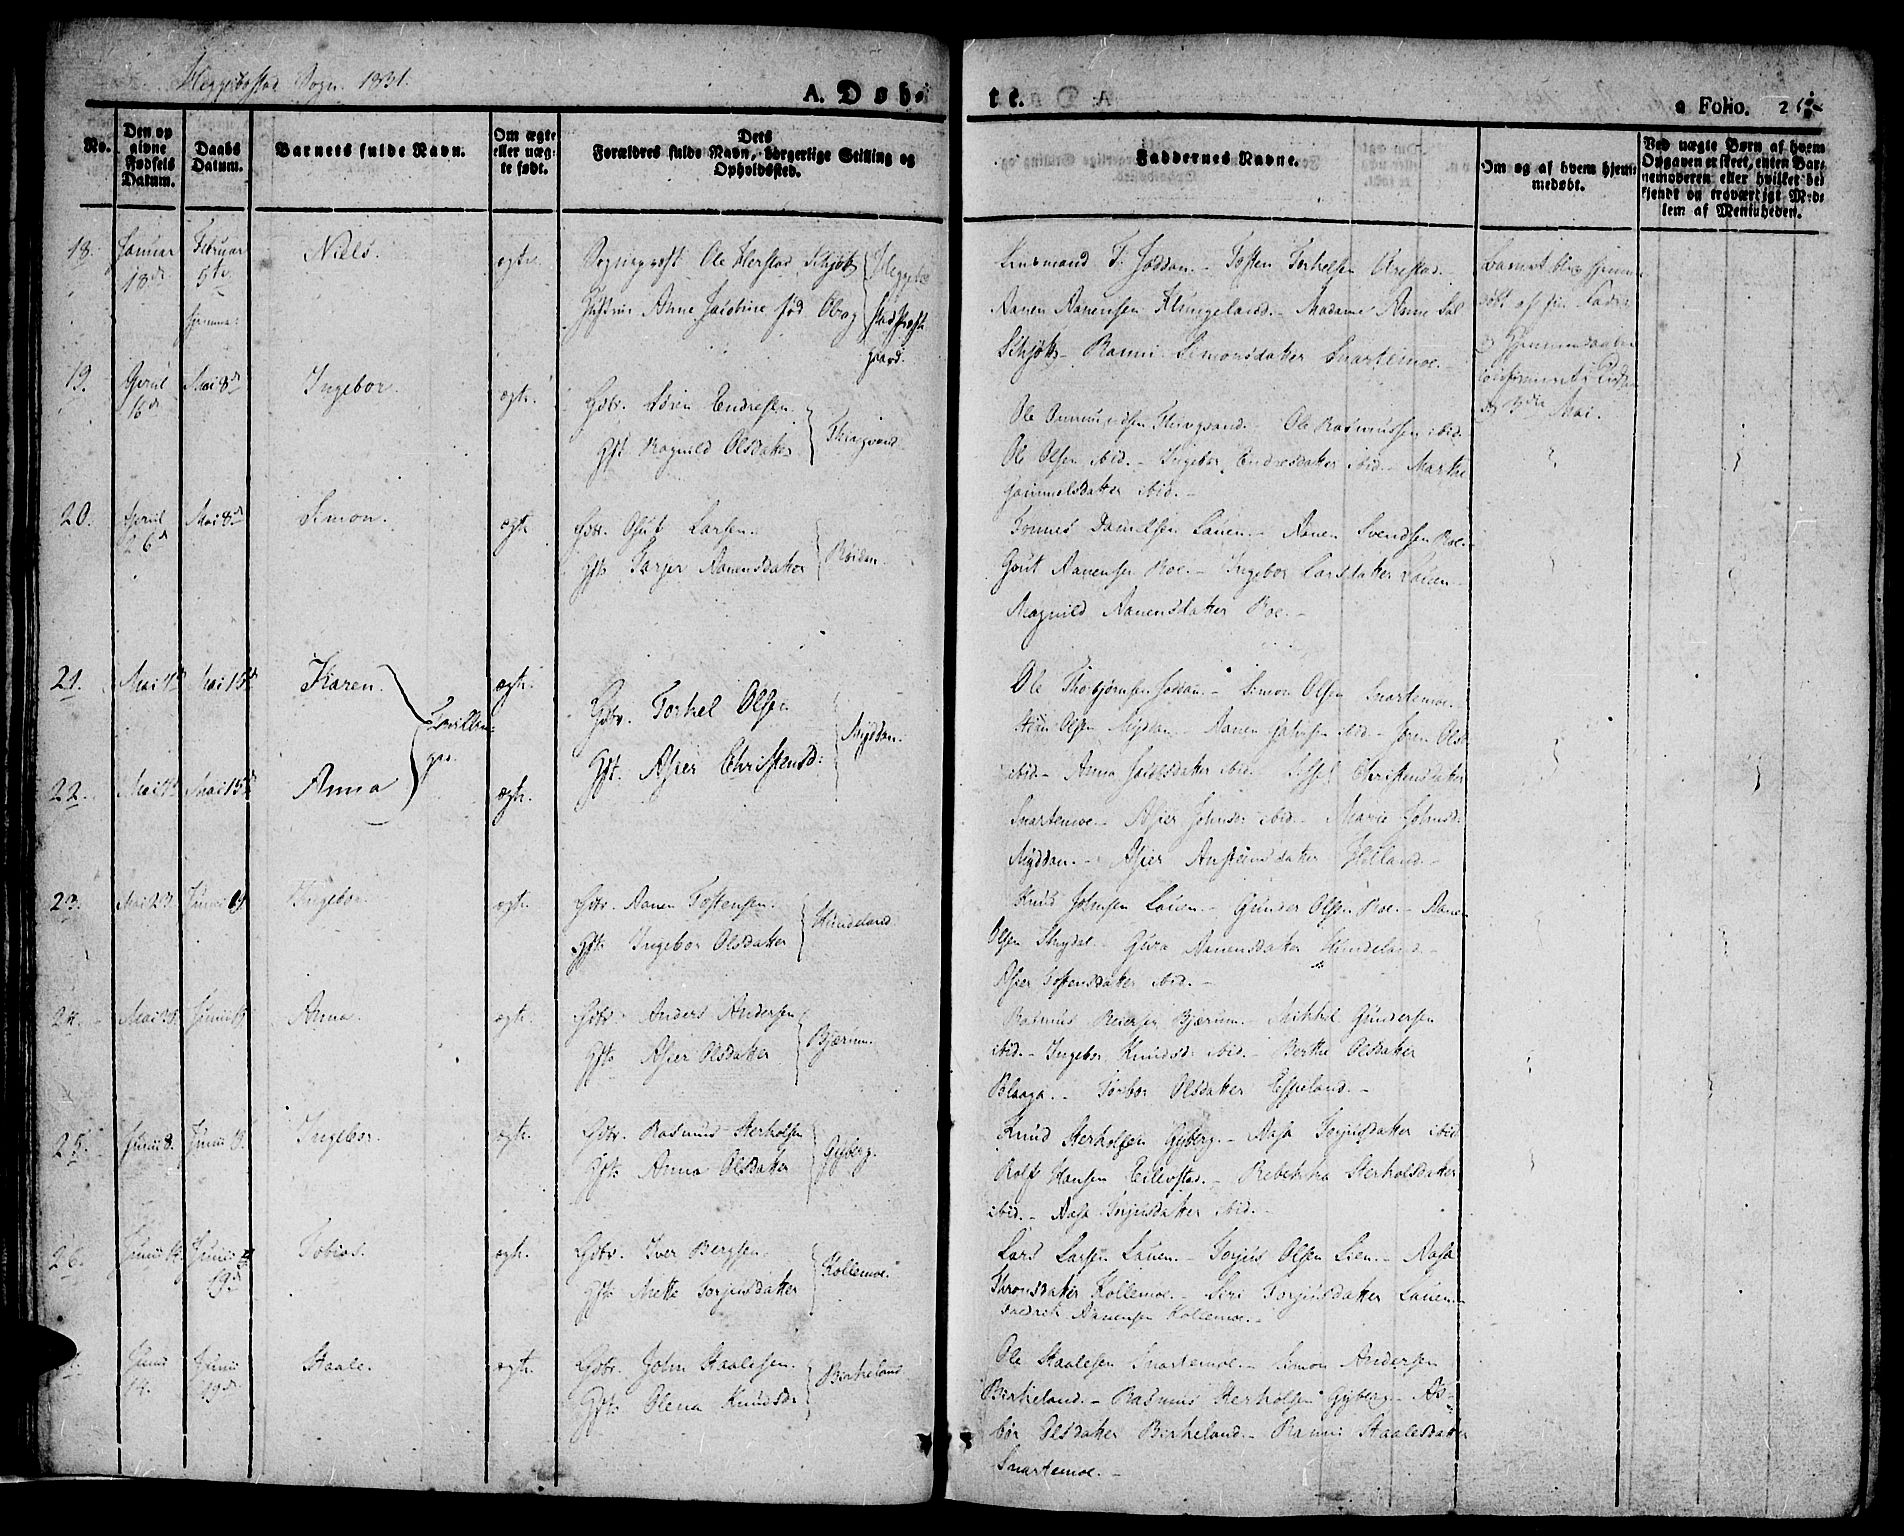 Heggebostad Sogn 1831.
A. Døbte.
a Folio. 26
No.
Den opgivne Fødsels Datum.
Daabs Datum.
Barnets fulde Navn.
Om ægte eller uægte født.
Dets Forældres fulde Navn, borgerlige Stilling og Opholdssted.
Faddernes Navne.
Om og af hvem hjemmedøbt.
Ved uægte Børn af hvem Opgaven er skeet, enten Barnemoderen eller hvilket bekjendt og troværdigt Medlem af Menigheden.
18. Januar 18de Februar 5te hjemme: Niels. ægte.
Sogneprest Ole Herstad Schjøtt
Hustrue Anne Jacobine fød Obag
Heggebostad Prestegaard.
Lensmand T. Joddan. - Tosten Torkelsen Urestad.
Aanen Aanensen Klungeland. - Madame Anne
Schjøtt - Ranni Simonsdatter Snartemoe. -
Barnet blev hjemmedøbt af sin Fader
og Hjemmedaaben
confirmert i Kirken
den Mai.
19. April 16de Mai 8de Ingebor. ægte.
Gbr. Søren Endresen.
Gft. Ragnild Olsdatter
Ole Ommundsen - Ole Rasmussen ibid.
Ole Olsen ibid. - Ingebor Endresdatter ibid - Marthe
Gammelsdatter ibid. -
20. April 26de Mai 8de Simon. ægte
Gbr. Gjut Larsen.
Gft. Tarjer Aanensdatter
Røidan.
Tønnes Danielsen Lauen - Aanen Svendsen Roe.
Gjut Aanensen Roe. - Ingebor Larsdatter Lauen -
Magnild Aanensdatter Roe. -
21. Mai Mai 15de Karen. ægte.
Tvillinger.
22. Mai Mai 15de Anna ægte.
Gbr. Torkel Olsen
Gft. Asier Christensd:
Myddan.
Ole Thorbjørnsen Joddan. - Simon Olsen Snartemoe.
Olsen Myddan - Aanen Johnsen ibid - Søren Olsen
ibid - Anna ibid. Sissel Christensdatter
Snartemoe. - Asier Johnsd: ibid. - Marie Johnsd:
Myddan. - Asier Anstensdatter Holland. -
23. Mai 23. Junii 19 Ingebor. ægte.
Gbr. Aanen Tostensen.
Gft. Ingebor Olsdatter
Hundeland
Knud Johnsen Lauen. - Gunder Olsen Roe. - Aanen
Olsen - Gura Aanensdatter Hundeland. -
Asier Tostensdatter ibid. -
24. Mai Junii 19 Anna. ægte.
Gbr. Anders Andersen
Gft. Asier Olsdatter
Bjærum.
Rasmus Reiersen Bjærum. - Mikkel Gundersen
ibid. - Ingebor Knudsd: ibid. - Berthe Olsdatter
Blaaga. - Torbor Olsdatter Espeland. -
25. Junii 8. Junii 19. Ingebor. ægte.
Gbr. Rasmus Sterkolsen
Gft. Anna Olsdatter
Gyberg.
Knud Sterkolsen Gyberg. - Aasa Torjusdatter ibid
Rolf Hansen Eilevstad. - Rebekka Sterkolsdatter
ibid. - Aasa Torjusdatter ibid. -
26. Junii 14 Junii 19de Tobias. ægte.
Gbr. Iver Bergsen.
Gft. Mette Torjusdatter
Kollemoe.
Lars Larsen Lauen. - Torjus Olsen Lien. - Aasa
Thronsdatter Kollemoe. - Siri Torjusdatter Lauen. -
Aanensen Kollemoe. -
Junii 14. Junii 19de Staale. ægte.
Gbr. John Staalesen.
Gft. Olena Knudsdr
Birkeland
Ole Staalesen Snartemoe. - Simon Andersen
Birkeland. - Rasmus Sterkolsen Gyberg. - As-
bør Olsdatter Birkeland. - Ranni Staalesdatter
Snartemoe. -